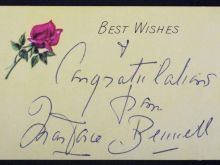 BEST WISHES
&
Congratulations
from
Constance Bennett